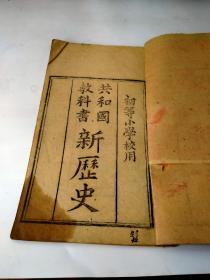 初等小學校用
共和國
教科書
新歷史